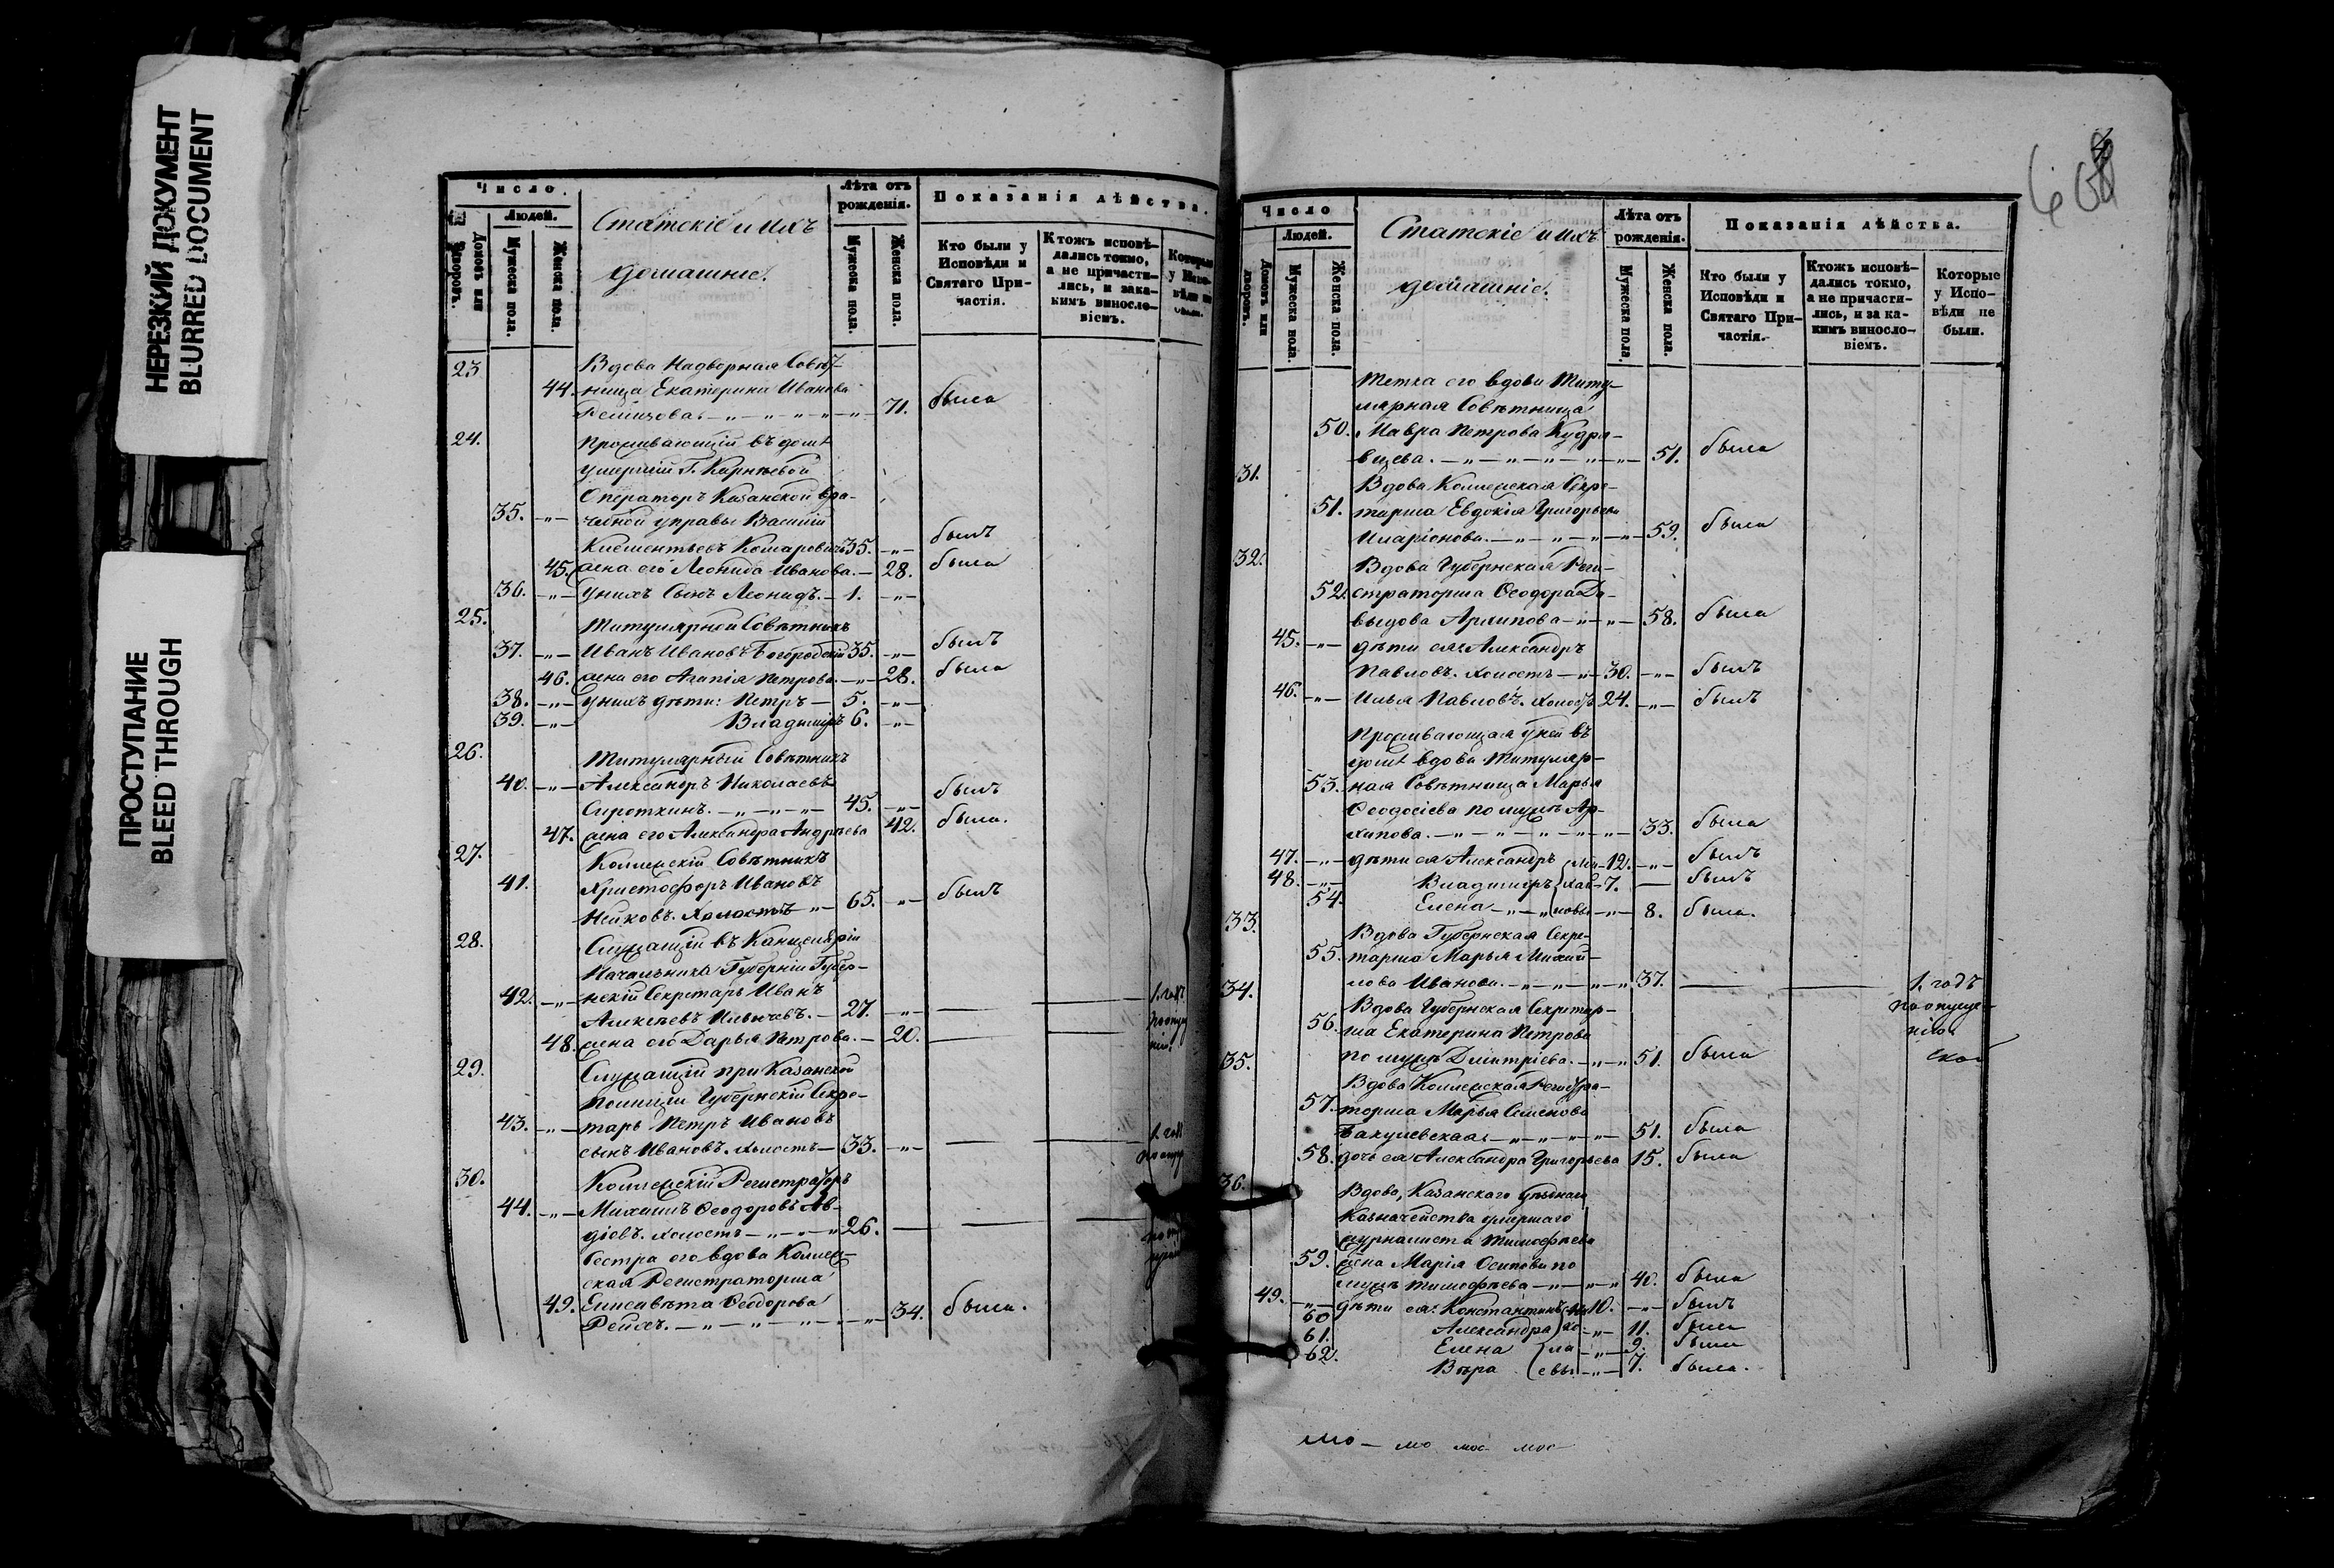 НЕРЕЗКИЙ ДОКУМЕНТ
BLURRED DOCUMENT
ПРОСТУПАНИЕ
BLEED THROUGH
Число.
Людей.
Домовъ или дворовъ.
Мужеска пола.
Женска пола.
Статскіе и ихъ
домашніе.
Лѣта отъ рожденія.
Мужеска пола.
Женска пола.
Показанія дѣйства.
Кто были у Исповѣди и Святаго Причастія.
Ктожъ исповѣ-
дались токмо,
а не причасти-
лись, и зака-
кимъ винослo-
віемъ.
Которые
23 Вдова Надворная Совѣт-
44. ница Екатерина Иванова
71. была
24. Проживающій въ домѣ
умершій Г. Карнѣевой
Операторъ Казанской вра-
35. чебной управы Василій
Климентьевъ Комаровичъ 35. былъ
45. жена его Леонида Иванова. 28. была
36. у нихъ сынъ Леонидъ. 1.
25. Титулярной Совѣтникъ
37. Иванъ Ивановъ Богородскій 35. былъ
46. жена его Агапія Петрова. 28. была
38. у нихъ дѣти: Петръ 5.
39. Владиміръ 6.
26. Титулярный Совѣтникъ
40. Александръ Николаевъ
Сироткинъ. 45. былъ
47. жена его Александра Андрѣева 42. была.
27. Коллежскій Совѣтникъ
41. Христофоръ Ивановъ
Нейковъ. Холостъ 65. былъ
28. Служащій въ Канцеляріи
Начальника Губерніи Губер-
42. нскій Секретарь Иванъ
Алексѣевъ 27. 1. годъ
48. жена его Дарья Петрова. 20.
29. Служащій при Казанской
Полиціи Губернскій Секре-
43. тарь Петръ Ивановъ
сынъ Ивановъ. холостъ 33. 1. годъ
30. Коллежскій Регистраторъ
44. Михаилъ Ѳеодоровъ Ав-
діевъ. холостъ 26.
Сестра его вдова Коллеж-
ская Регистраторша
49. Елисавета Ѳеодорова
Рейхъ. 34. была.
Число
Людей.
Домовъ или дворовъ.
Мужеска пола.
Женска пола.
Статскіе и ихъ
домашніе.
Лѣта отъ рожденія.
Мужеска пола.
Женска пола.
Показанія дѣйства.
Кто были у Исповѣди и Святаго Причастія.
Ктожъ исповѣ-
дались токмо,
а не причасти-
лись, и за ка-
кимъ винослo-
віемъ.
Которые
у Испо-
вѣди не
были.
Тетка его вдова Титу-
лярная Совѣтница
50. Мавра Петрова Кудря-
вцева. 51. была
31. Вдова Коллежская Секре-
51. тарша Евдокія Григорьева
Иларіонова. 59. была
32. Вдова Губернская Реги-
52. страторша Ѳеодора Да-
выдова Архипова 58. была
45. дѣти ея: Александръ
Павловъ. холостъ 30. былъ
46. Илья Павловъ. холостъ 24. былъ
Проживающая у ней въ
домѣ вдова Титуляр-
53. ная Совѣтница Марья
Ѳеодосіева по мужѣ Ар-
хипова. 33. была
47. дѣти ея Александръ 12. былъ
48. Владиміръ 7. былъ
54. Елена 8. была.
33. Вдова Губернская Секре-
55. тарша Марья Михай-
лова Иванова. 37. 1. годъ
34. Вдова Губернская Секретар-
56. ша Екатерина Петрова
по мужѣ Дмитріева. 51. была
35. Вдова Коллежская Регистра-
57. торша Марья Семенова
Бакулевская 51. была
58. дочь ея Александра Григорьева 15. была
36. Вдова, Казанскаго Уѣзднаго
Казначейства умершаго
журналиста Тимофѣева
59. жена Марія Осипова по
мужѣ Тимофѣева 40. была
49. дѣти ея: Константинъ 10. былъ
60 Александра 11. была
61. Елена 9. была
62. Вѣра 7. была.